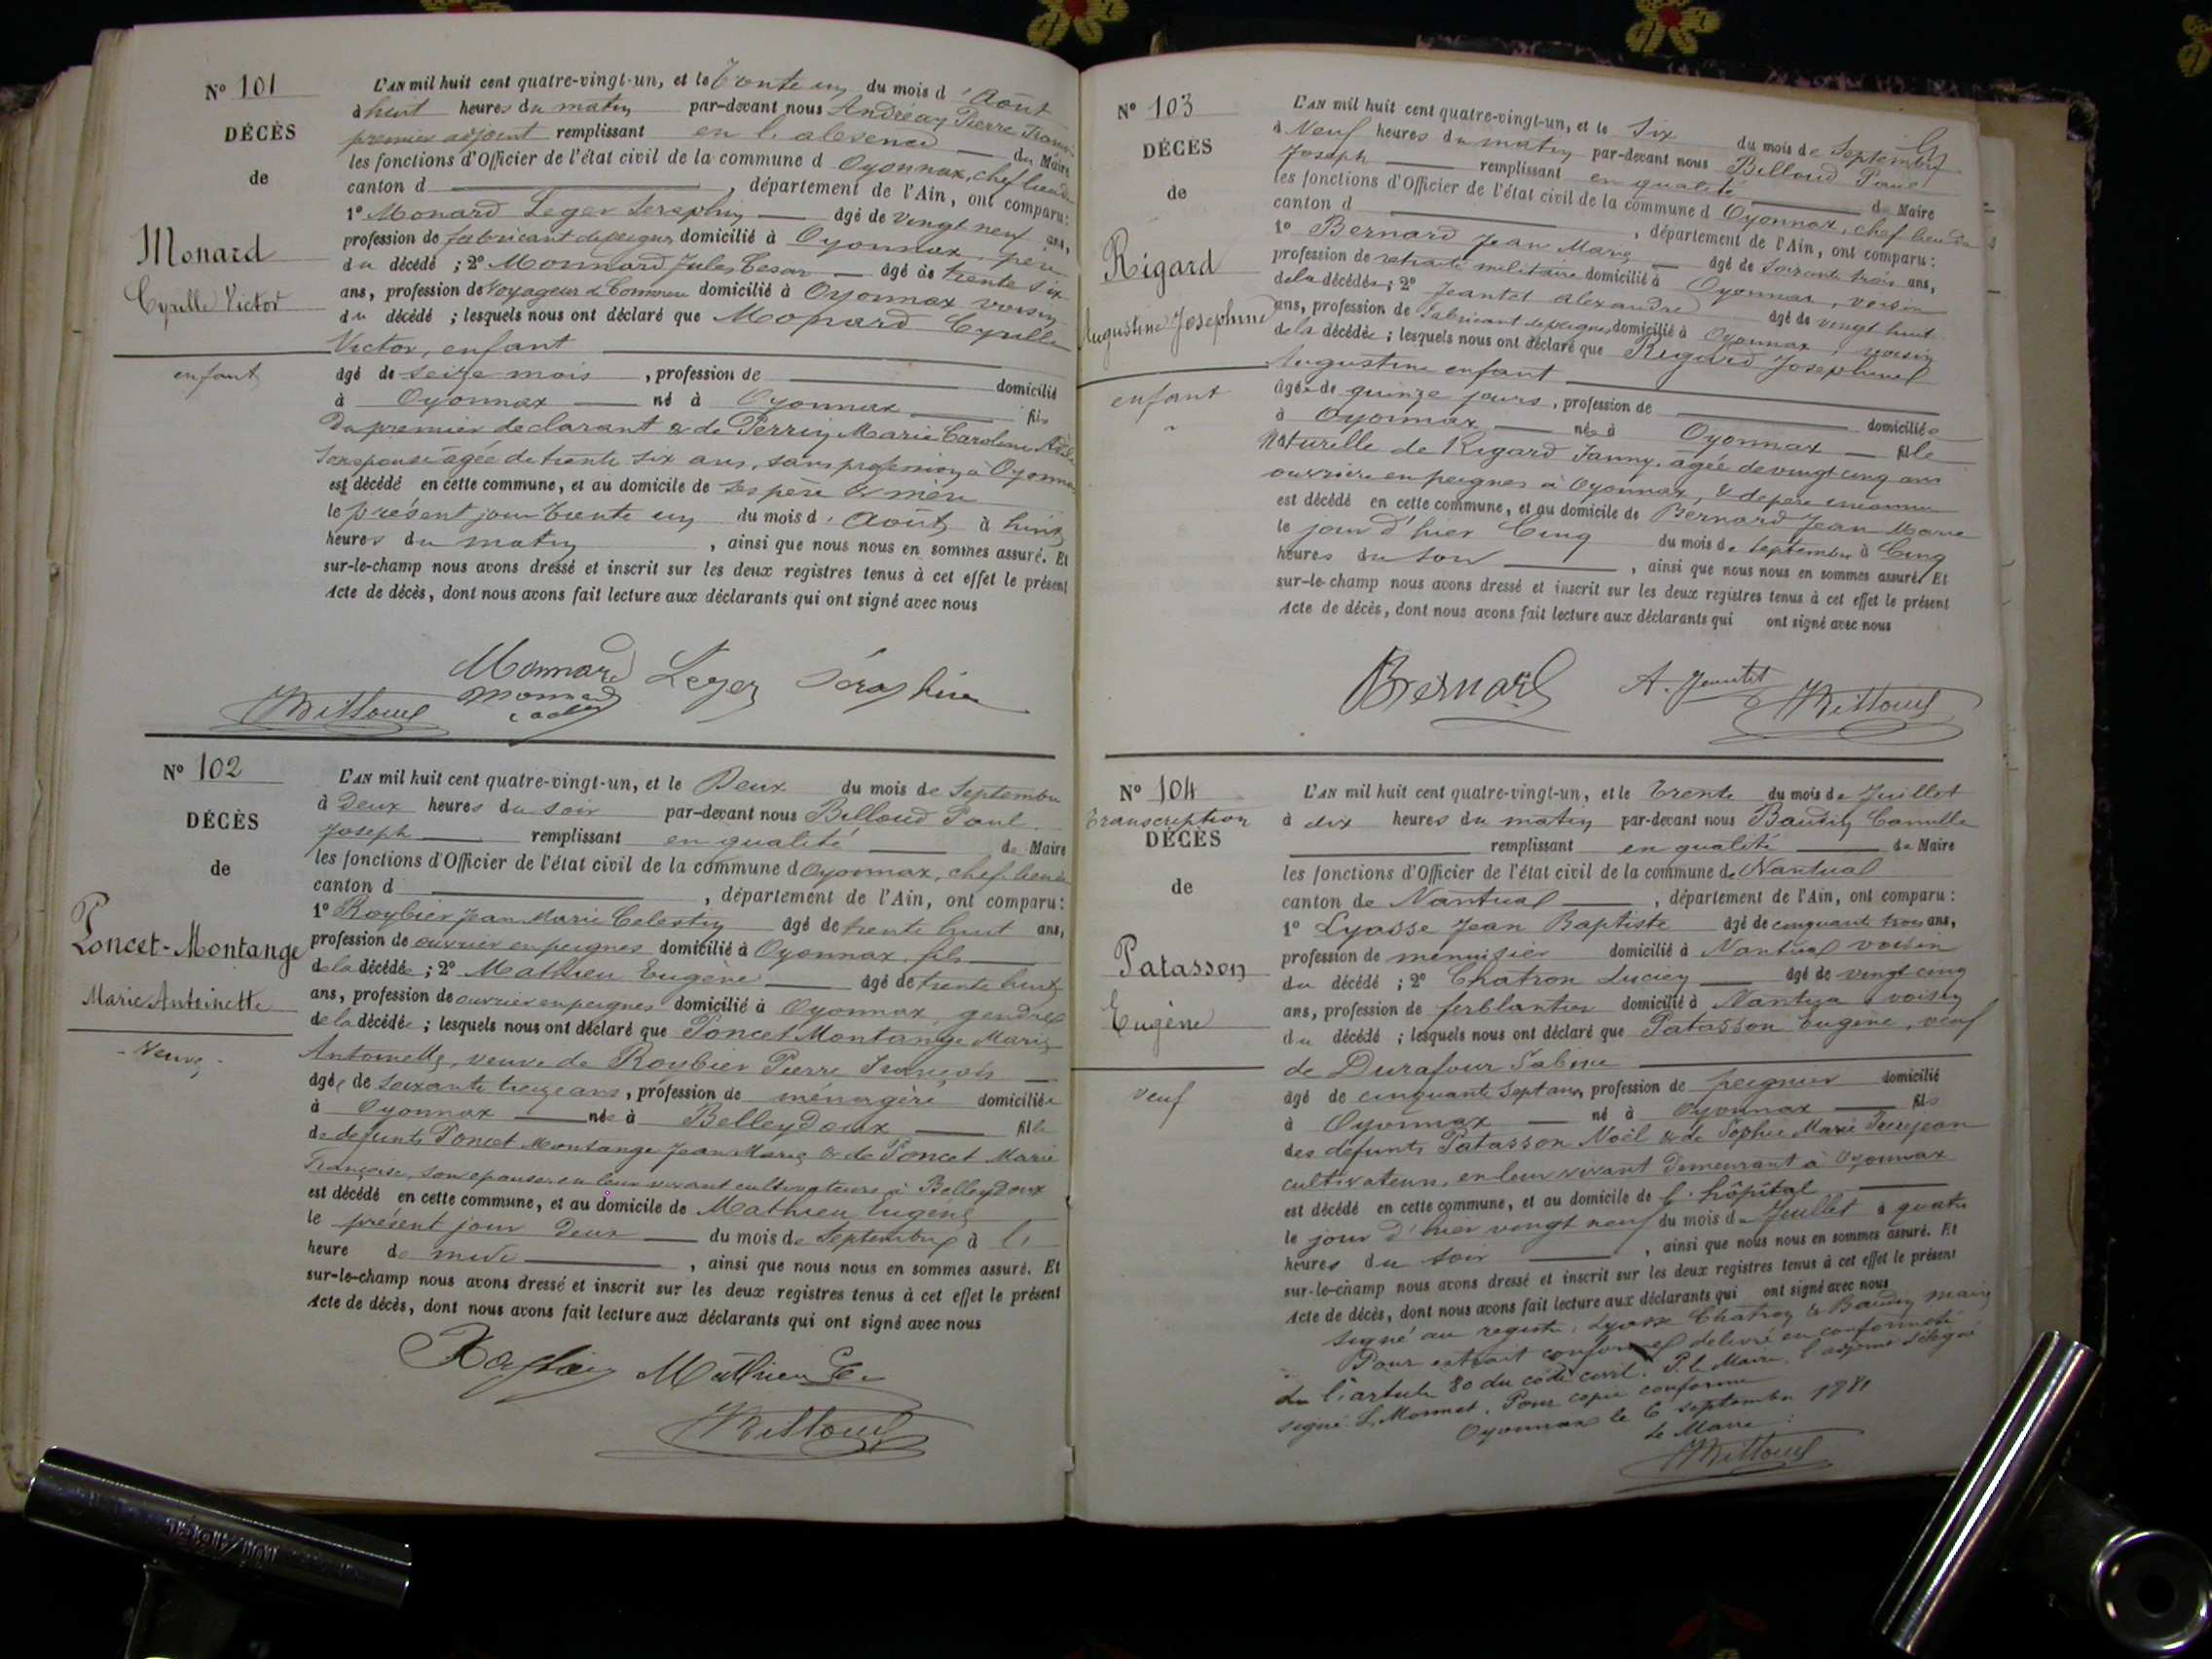 N° 101
DÉCÈS
de
Monard
Cyrille Victor
enfant
L'AN mil huit cent quatre-vingt-un, et le Trente un du mois d'Août
à huit heures du matin par-devant nous Andréan Pierre
premier adjoint remplissant en l'absence du Maire
les fonctions d'Officier de l'état civil de la commune d Oyonnax, chef lieu de
canton d , département de l'Ain, ont comparu:
1° Monard Leger Seraphin âgé de vingt neuf ans,
profession de fabricant de peignes domicilié à Oyonnax, père
du décédé ; 2° Monnard Jules Cesar âgé de trente six
ans, profession de Voyageur de Commerce domicilié à Oyonnax voisin
du décédé ; lesquels nous ont déclaré que Monard Cyrille
Victor, enfant
âgé de seize mois , profession de domicilié
à Oyonnax né à Oyonnax fils
Du premier declarant & de Perrin Marie Caroline
son epouse agée de trente six ans, sans profession à Oyonnax
est décédé en cette commune, et au domicile de ses père & mère
le présent jour trente un du mois d'Août à huit
heures du matin , ainsi que nous nous en sommes assuré. Et
sur-le-champ nous avons dressé et inscrit sur les deux registres tenus à cet effet le présent
Acte de décès, dont nous avons fait lecture aux déclarants qui ont signé avec nous
Monnard Leger Séraphin
Monnard
PBilloud
N° 102
DÉCÈS
de
Poncet-Montange
Marie Antoinette
- Veuve -
L'AN mil huit cent quatre-vingt-un, et le Deux du mois de Septembre
à Deux heures du soir par-devant nous Billoud Paul
Joseph remplissant en qualité de Maire
les fonctions d'Officier de l'état civil de la commune d Oyonnax, chef lieu de
canton d , département de l'Ain, ont comparu:
1° Roybier Jean Marie Celestin âgé de trente huit ans,
profession de ouvrier en peignes domicilié à Oyonnax, fils
de la décédée ; 2° Mathieu Eugène âgé de trente huit
ans, profession de ouvrier en peignes domicilié à Oyonnax, gendre
de la décédée ; lesquels nous ont déclaré que Poncet Montange Marie
Antoinette, veuve de Roybier Pierre François
âgée de soixante treize ans, profession de ménagère domiciliée
à Oyonnax née à Belleydoux fille
de defunts Poncet Montange Jean Marie & de Poncet Marie
Françoise, son epouse, en leur vivant cultivateurs à Belleydoux
est décédé en cette commune, et au domicile de Mathieu Eugène
le présent jour Deux du mois de Septembre à l'
heure de midi , ainsi que nous nous en sommes assuré. Et
sur-le-champ nous avons dressé et inscrit sur les deux registres tenus à cet effet le présent
Acte de décès, dont nous avons fait lecture aux déclarants qui ont signé avec nous
Mathieu E.
PBilloud
N° 103
DÉCÈS
de
Rigard
Augustine Josephine
enfant
L'AN mil huit cent quatre-vingt-un, et le Six du mois de Septembre
à Neuf heures du matin par-devant nous Billoud Paul
Joseph remplissant en qualité de Maire
les fonctions d'Officier de l'état civil de la commune d Oyonnax, chef lieu de
canton d , département de l'Ain, ont comparu:
1° Bernard Jean Marie âgé de soixante trois ans,
profession de retraité militaire domicilié à Oyonnax, voisin
de la décédée; 2° Jeantet Alexandre âgé de vingt huit
ans, profession de fabricant de peignes domicilié à Oyonnax, voisin
de la décédée ; lesquels nous ont déclaré que Rigard Josephine
Augustine enfant
âgée de quinze jours, profession de domiciliée
à Oyonnax née à Oyonnax fille
Naturelle de Rigard Fanny, agée de vingt cinq ans
ouvrière en peignes à Oyonnax, & de père inconnu
est décédé en cette commune, et au domicile de Bernard Jean Marie
le jour d'hier Cinq du mois de Septembre à Cinq
heures du soir , ainsi que nous nous en sommes assuré. Et
sur-le-champ nous avons dressé et inscrit sur les deux registres tenus à cet effet le présent
Acte de décès, dont nous avons fait lecture aux déclarants qui ont signé avec nous
Bernard A. Jeantet
PBilloud
N° 104
Transcription
DÉCÈS
de
Patasson
Eugène
veuf
L'AN mil huit cent quatre-vingt-un, et le Trente du mois de Juillet
à dix heures du matin par-devant nous Baudin Camille
remplissant en qualité de Maire
les fonctions d'Officier de l'état civil de la commune de Nantua
canton de Nantua , département de l'Ain, ont comparu:
1° Lyasse Jean Baptiste âgé de cinquante trois ans,
profession de menuisier domicilié à Nantua voisin
du décédé ; 2° Chatron Lucien âgé de vingt cinq
ans, profession de ferblantier domicilié à Nantua, voisin
du décédé ; lesquels nous ont déclaré que Patasson Eugène, veuf
de Durafour Sabine
âgé de cinquante sept ans, profession de peignier domicilié
à Oyonnax né à Oyonnax fils
des defunts Patasson Noël & de Sophie Marie
cultivateurs, en leur vivant demeurant à Oyonnax
est décédé en cette commune, et au domicile de l'hôpital
le jour d'hier vingt neuf du mois de Juillet à quatre
heures du soir , ainsi que nous nous en sommes assuré. Et
sur-le-champ nous avons dressé et inscrit sur les deux registres tenus à cet effet le présent
Acte de décès, dont nous avons fait lecture aux déclarants qui ont signé avec nous
signé au registre: Lyasse Chatron & Baudin maire
Pour extrait conforme delivré en conformité
de l'article 80 du code civil. P. le Maire, l'adjoint délégué
signé L. Monnet. Pour copie conforme
Oyonnax le 6 septembre 1881
le Maire:
PBilloud